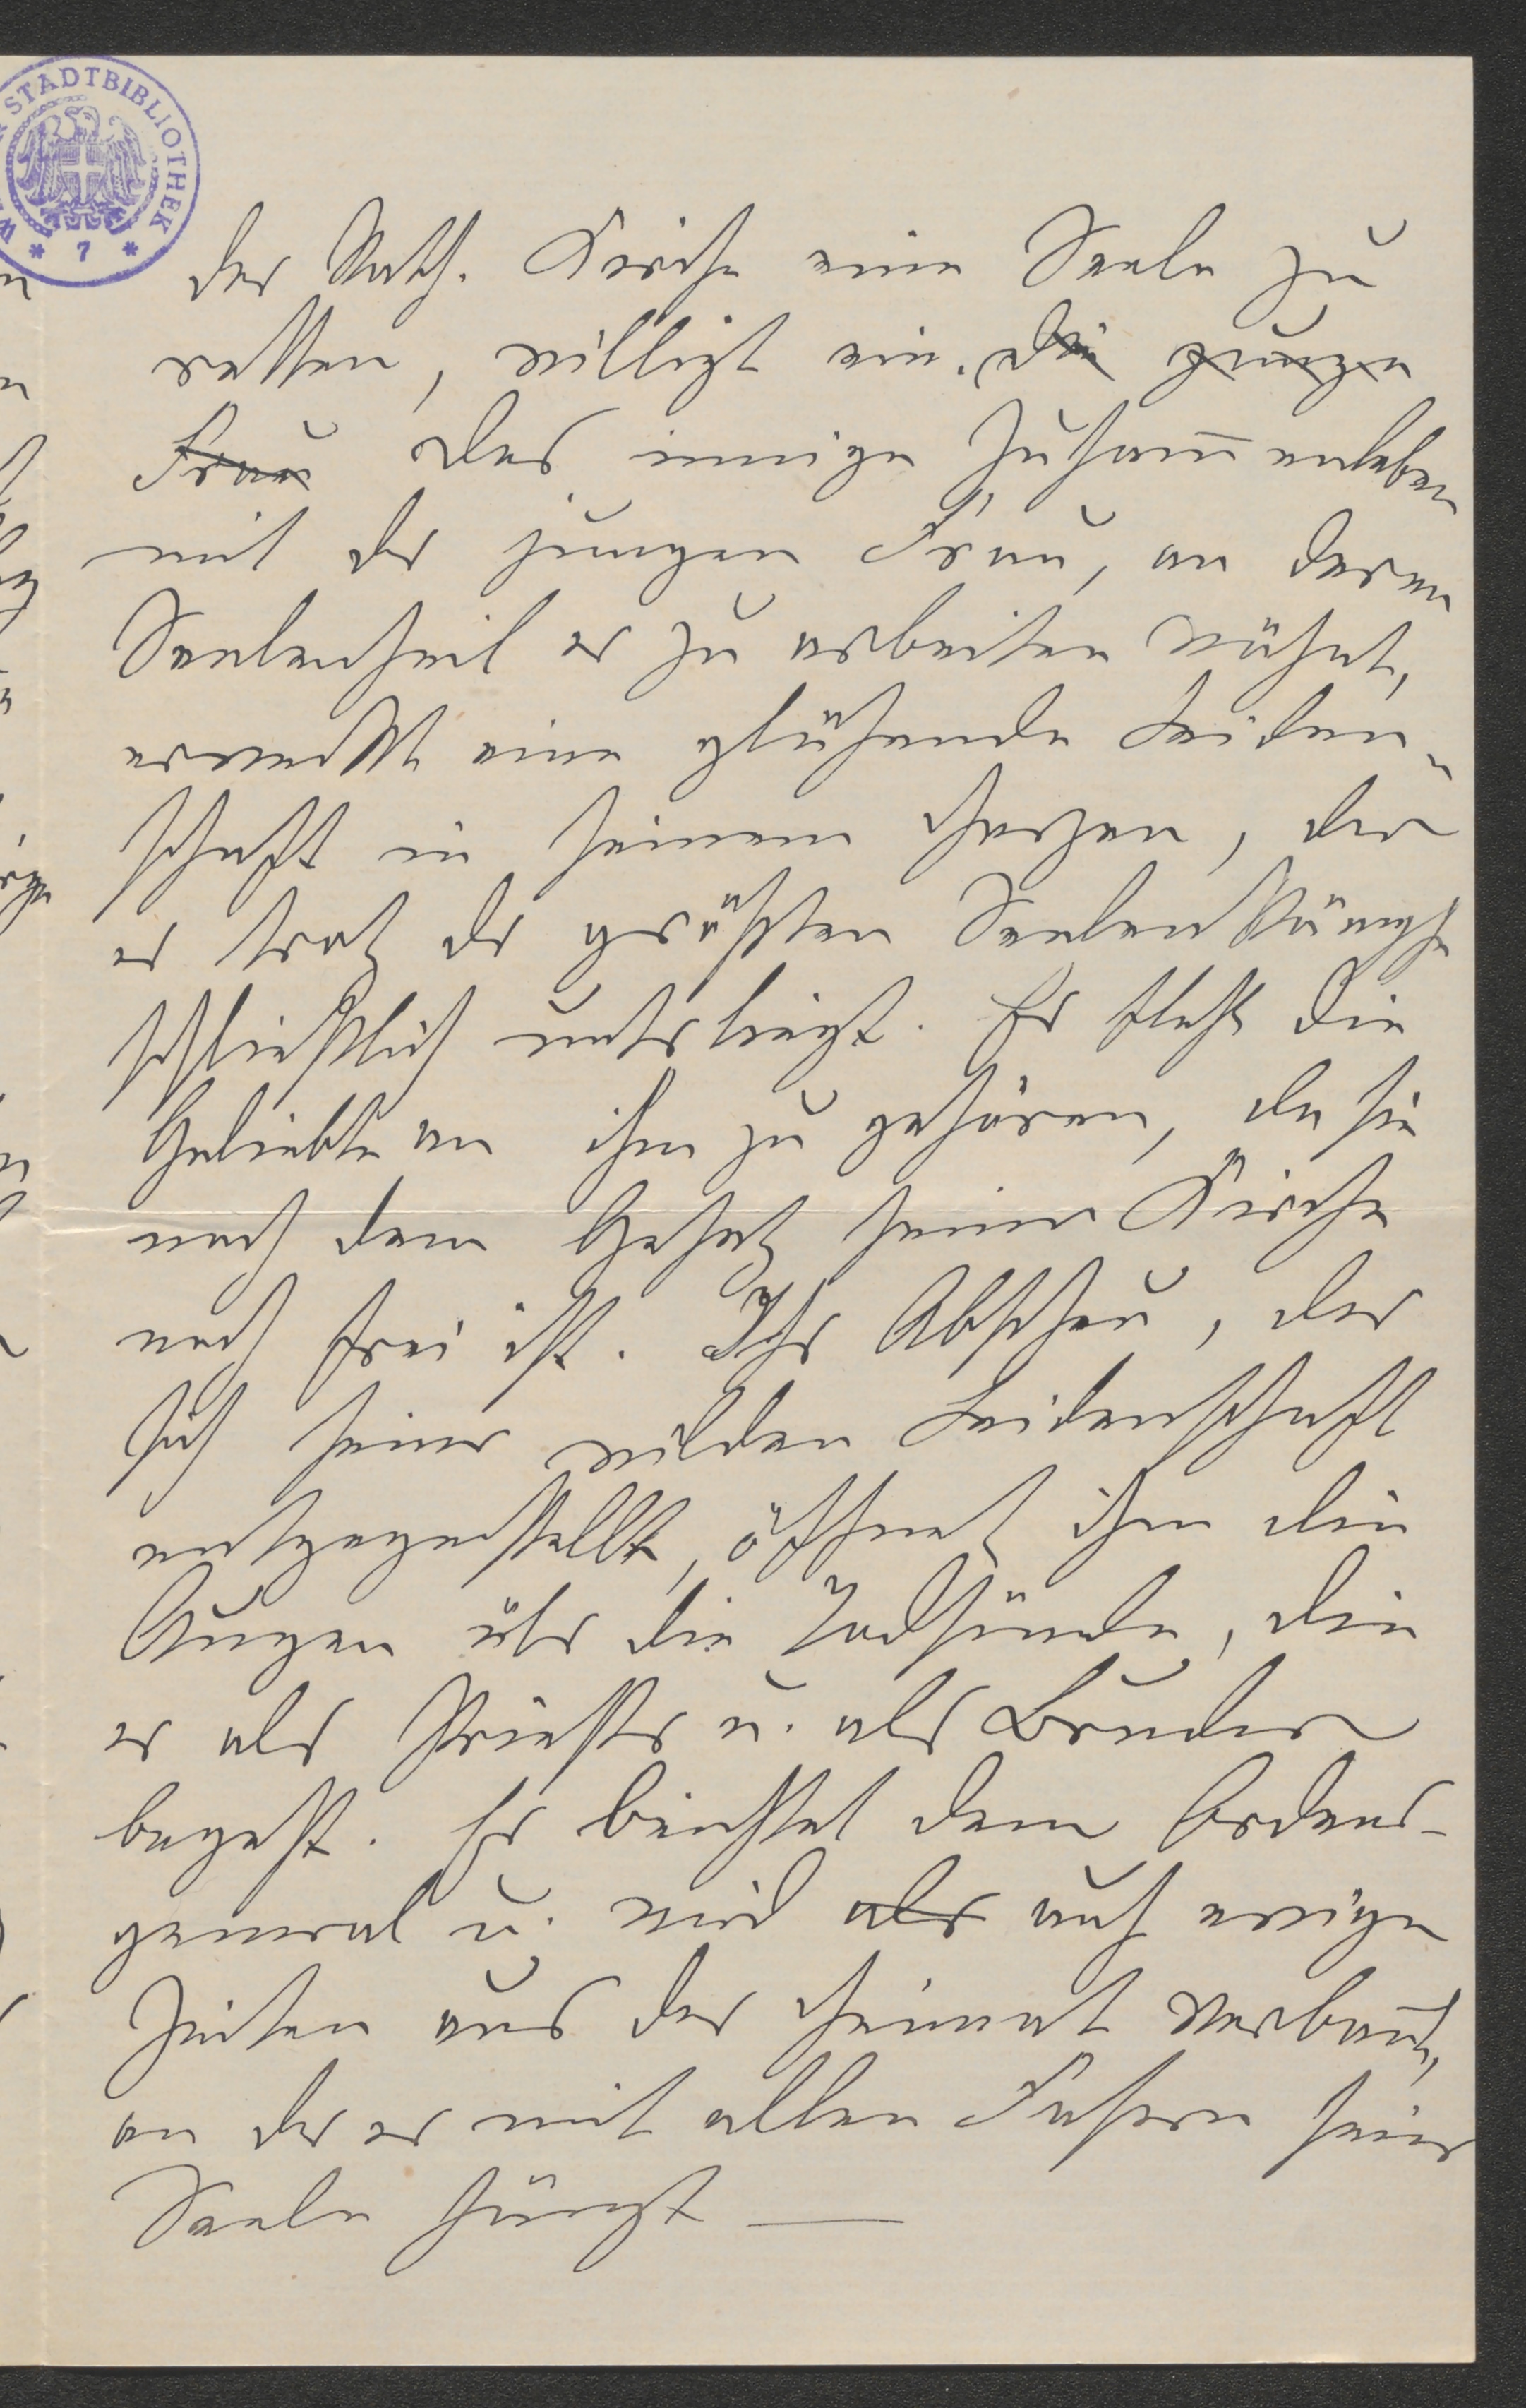 STADTBIBLIOTHEK
* 7 *
der kath. Kirche eine Seele zu
retten, willigt ein. Die junge
Frau Das innige Zusam̅enleben
mit der jungen Frau, an deren
Seelenheil er zu arbeiten wähnt,
erweckt eine glühende Leiden-
schaft in seinem Herzen, der
er trotz der größten Seelenkämpfe
schließlich unterliegt. Er fleht die
Geliebte an ihm zu gehören, da sie
nach dem Gesetz seiner Kirche
noch frei ist. Ihr Abscheu, der
sich seiner wilden Leidenschaft
entgegenstellt, öffnet ihm die
Augen über die Todsünde, die
er als Priester u. als Bruder
begeht. Er beichtet dem Ordens-
general u. wird als auf ewige
Zeiten aus der Heimat verban̅t,
an der er mit allen Fasern seiner
Seele hängt —